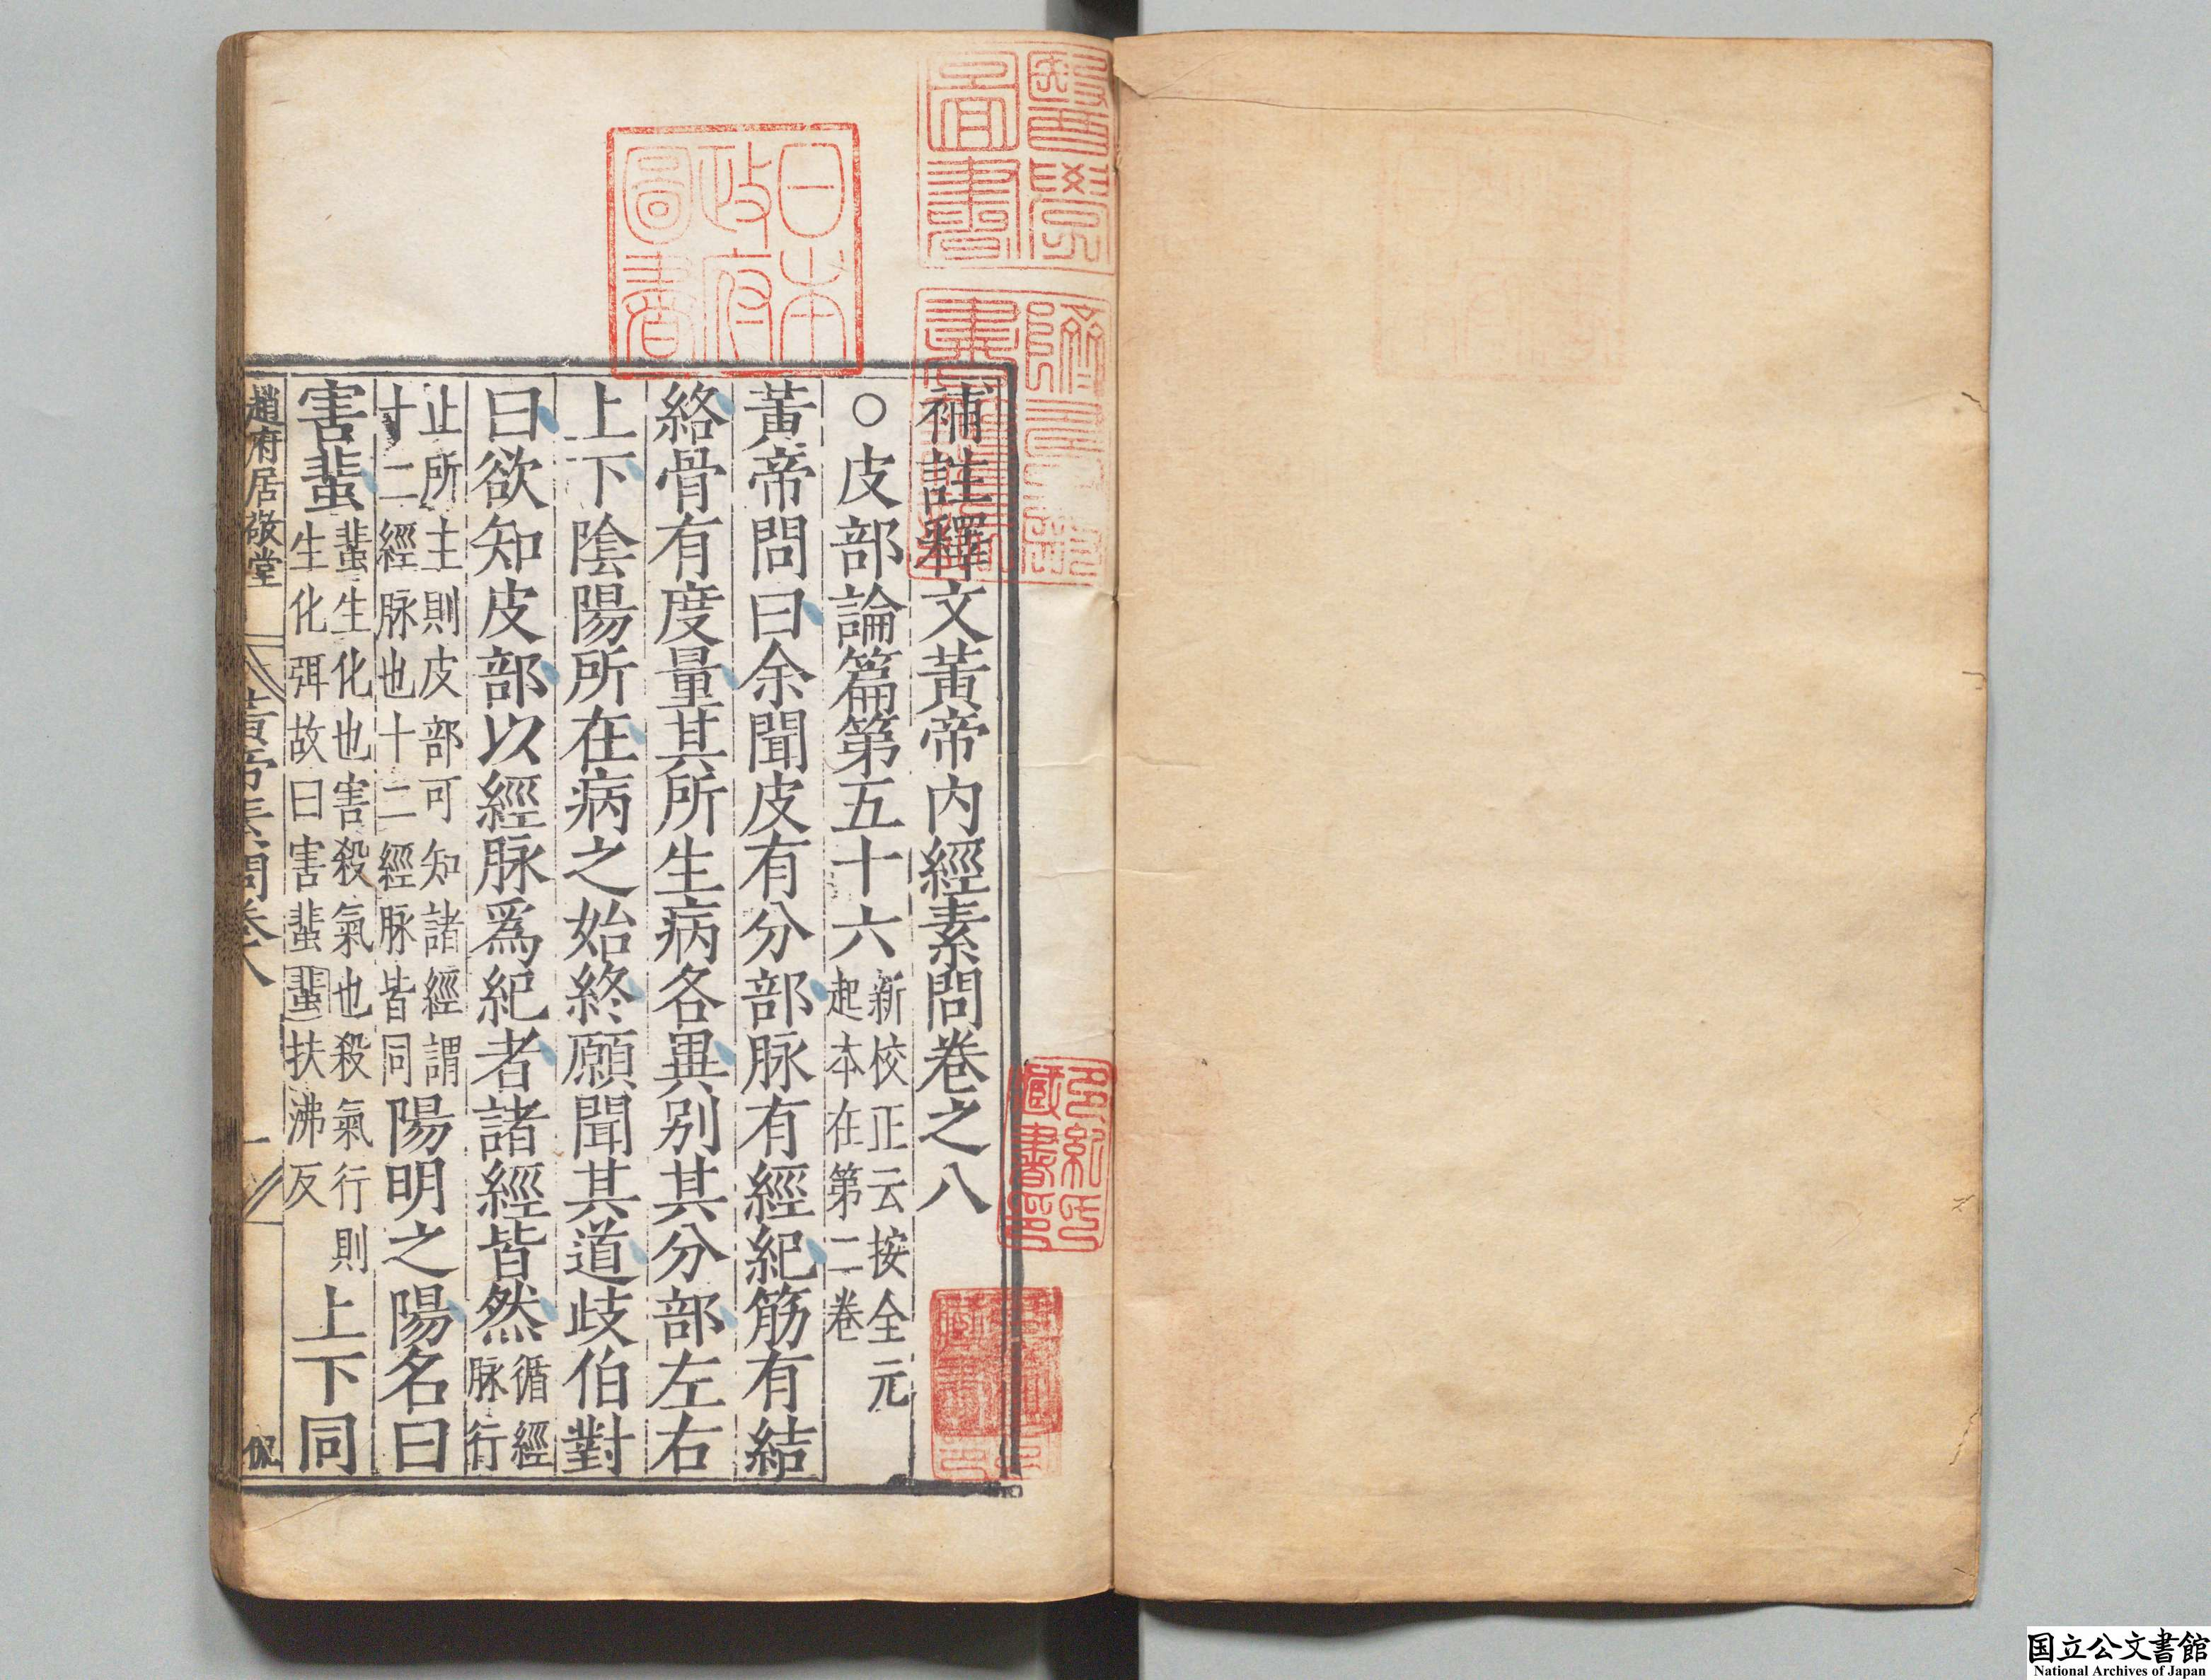 補註釋文黃帝内經素問卷之八
○皮部論篇第五十六新校正云按全元起本在第二卷
黃帝問曰余聞皮有分部脉有經紀筋有結
絡骨有度量其所生病各異别其分部左右
上下陰陽所在病之始終願聞其道歧伯對
曰欲知皮部以經脉爲紀者諸經皆然循經脉行
止所主則皮部可知諸經謂十二經脉也十二經脉皆同陽明之陽名曰
害蜚蜚生化也害殺氣也殺氣行則生化弭故曰害蜚蜚扶沸反上下同
趙府居敬堂
黃帝素問卷八
一
日本政府圖書
醫學圖書
躋壽殿書籍記
多紀氏藏書印
国立公文書館
National Archives of Japan